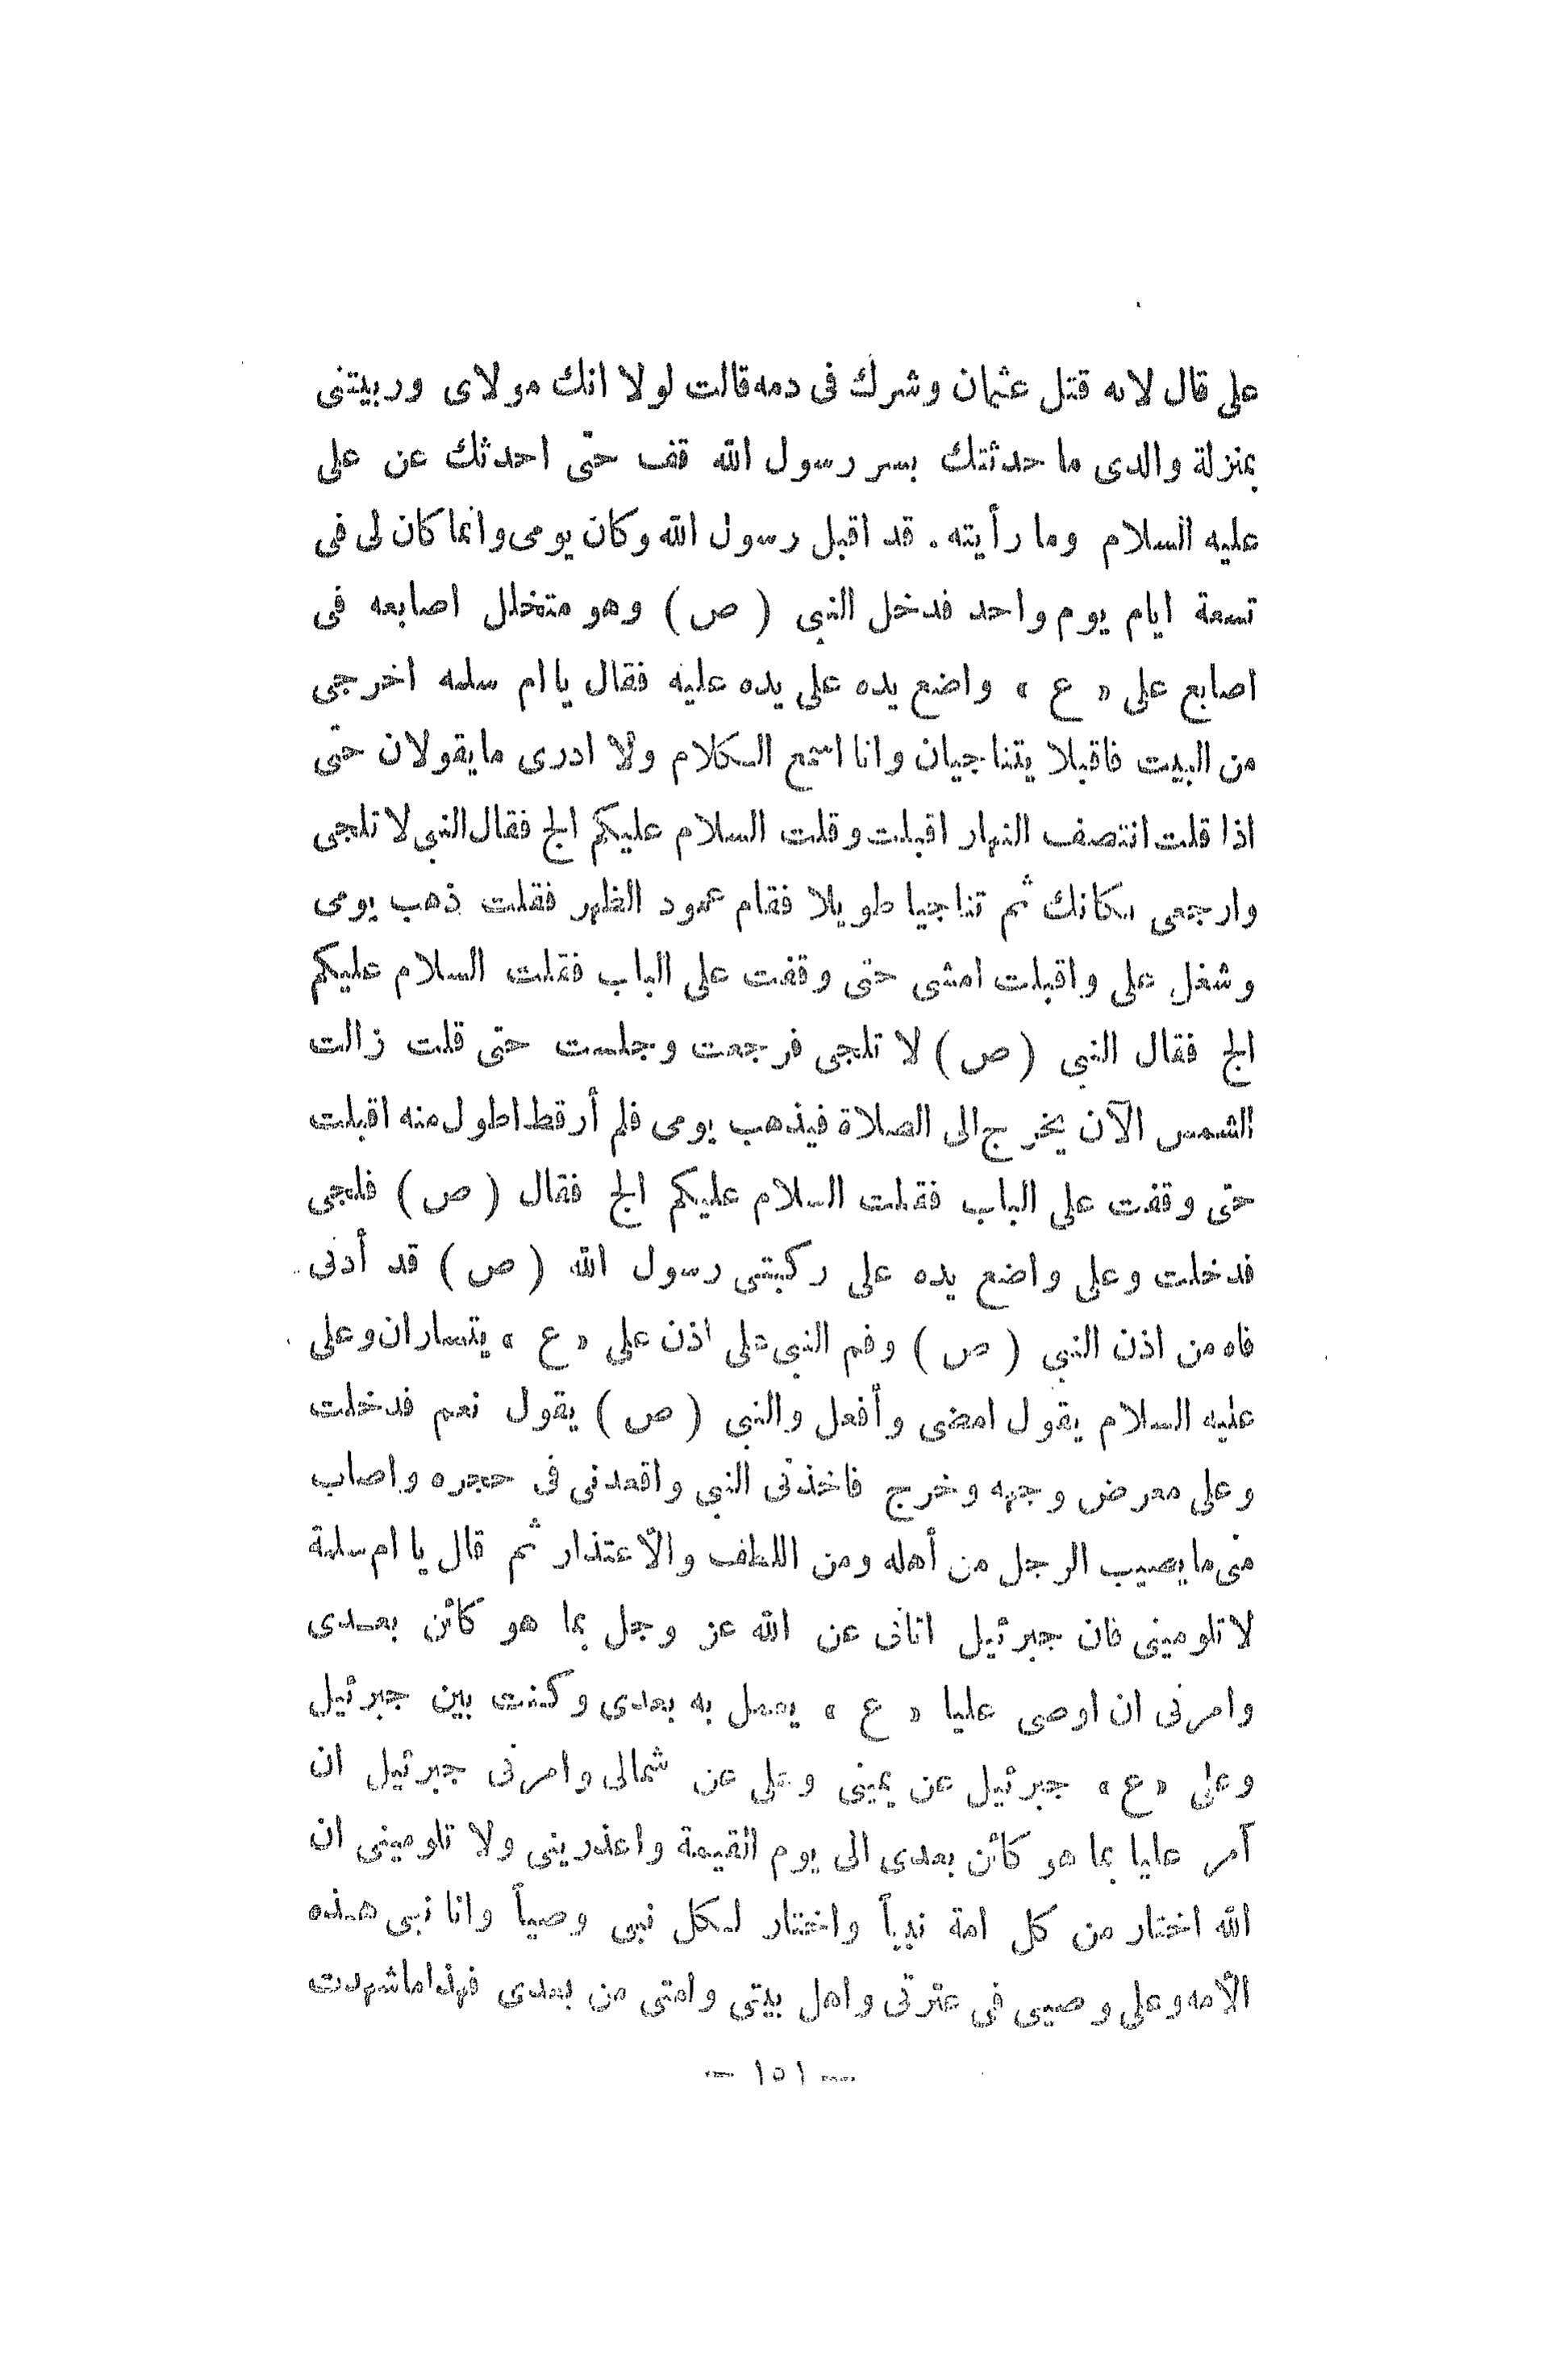 على قال لانه قتل عثمان وشرك فى دمه قالت لولا انك مولاى وربيتنى
بمنزلة والدى ما حدثتك بسر رسول الله قف حتى احدثك عن على
عليه السلام وما رأيته . قد اقبل رسول الله وكان يومى وانما كان لى فى
تسعة ايام يوم واحد فدخل النبى ( ص ) وهو متخلل اصابعه فى
اصابع على « ع » واضع يده على يده عليه فقال يا ام سلمه اخرجى
من البيت فاقبلا يتناجيان وانا اسمع الكلام ولا ادرى ما يقولان حتى
اذا قلت انتصف النهار اقبلت وقلت السلام عليكم الج فقال النبى لا تلجى
وارجعى مكانك ثم تناجيا طويلا فقام عمود الظهر فقلت ذهب يومى
وشغل على واقبلت امشى حتى وقفت على الباب فقلت السلام عليكم
الج فقال النبى ( ص ) لا تلجى فرجعت وجلست حتى قلت زالت
الشمس الآن يخرج الى الصلاة فيذهب يومى فلم أر قط اطول منه اقبلت
حتى وقفت على الباب فقلت السلام عليكم الج فقال ( ص ) فلجى
فدخلت وعلى واضع يده على ركبتى رسول الله ( ص ) قد أدنى
فاه من اذن النبى ( ص ) وفم النبى على اذن على « ع » يتساران وعلى
عليه السلام يقول امضى وأفعل والنبى ( ص ) يقول نعم فدخلت
وعلى معرض وجهه وخرج فاخذنى النبى واقعدنى فى حجره واصاب
منى ما يصيب الرجل من أهله ومن اللطف والأعتذار ثم قال يا ام سلمة
لا تلومينى فان جبرئيل اتانى عن الله عز وجل بما هو كائن بعدى
وامرنى ان اوصى عليا « ع » يعمل به بعدى وكنت بين جبرئيل
وعلى « ع » جبرئيل عن يمينى وعلى عن شمالى وامرنى جبرئيل ان
آمر عليا بما هو كائن بعدى الى يوم القيمة واعذرينى ولا تلومينى ان
الله اختار من كل امة نبياً واختار لكل نبى وصياً وانا نبى هذه
الأمه وعلى وصيى فى عترتى واهل بيتى وامتى من بعدى فهذا ما شهدت
— ١٥١ —